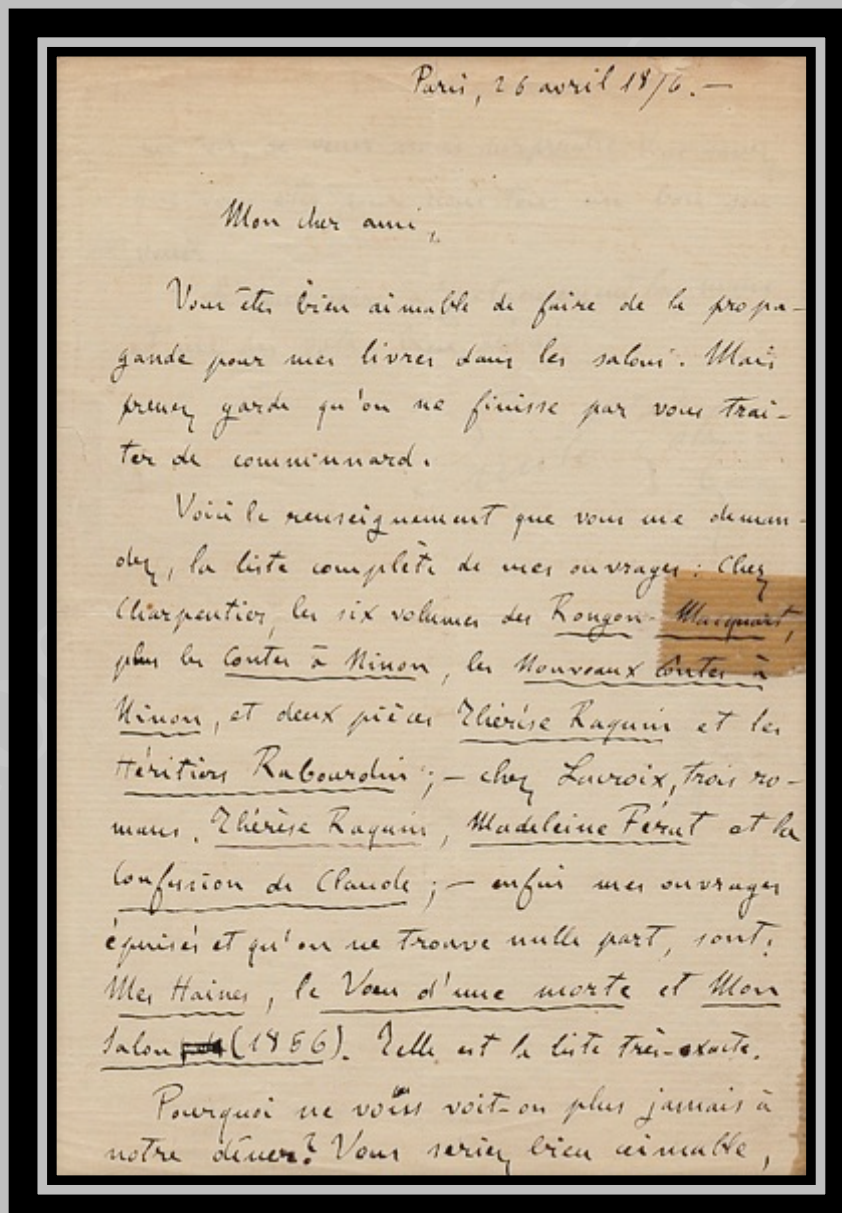 Paris, 26 avril 1876. —
Mon cher ami,
Vous êtes bien aimable de faire de la propa-
gande pour mes livres dans les salons. Mais
prenez garde qu'on ne finisse par vous trai-
ter de communnard.
Voici le renseignement que vous me deman-
dez, la liste complète de mes ouvrages : Chez
Charpentier, les six volumes des Rougon-Macquart,
plus les Contes à Ninon, les Nouveaux Contes à
Ninon, et deux pièces Thérèse Raquin et les
Héritiers Rabourdin ; — chez Lacroix, trois ro-
mans, Thérèse Raquin, Madeleine Férat et la
Confession de Claude ; — enfin mes ouvrages
épuisés et qu'on ne trouve nulle part, sont :
Mes Haines, le Vœu d'une morte et Mon
Salon (1866). Telle est la liste très-exacte.
Pourquoi ne vous voit-on plus jamais à
notre dîner? Vous seriez bien aimable,